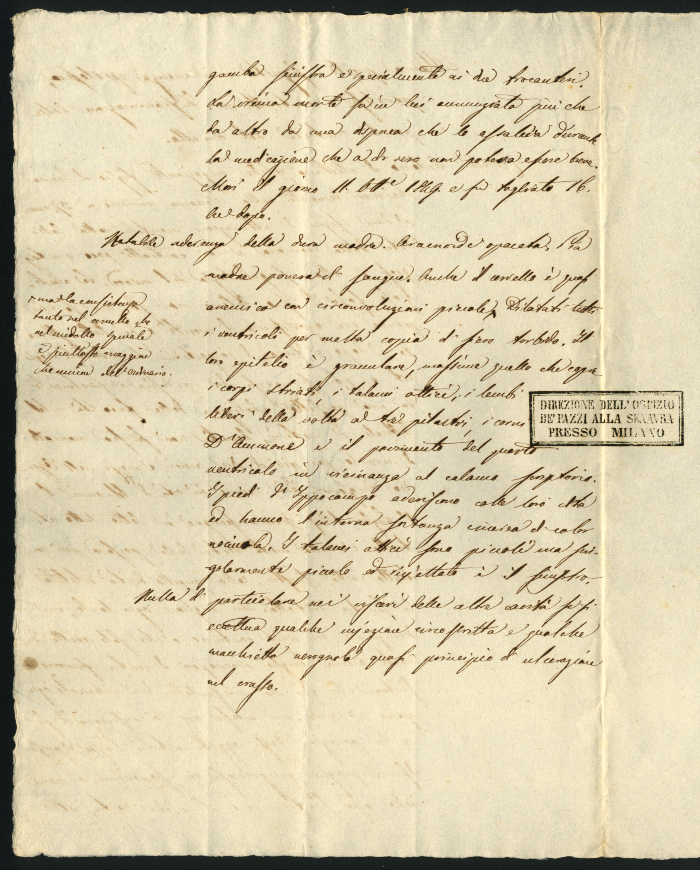 gamba sinistra e specialmente ai due trocanteri.
La vicina morte fu in lui annunziata più che
da altro da una dispnea che lo assaliva durante
la medicazione che a dì vero non poteva essere breve.
Morì il giorno 11. 8bre 1849. e fu tagliato 16.
Ore dopo.
Notabile aderenza della dura madre. Aracnoide opacata, Pia
madre povera di sangue. Anche il cervello è quasi
anemico con circonvoluzioni piccole, Dilatati tutti
i ventricoli per molta copia di siero torbido. Il
loro epitelio è granulare, massime quello che copre
i corpi striati, i talami ottici, i lembi
liberi della volta a tre pilastri, i corni
D'Ammone e il pavimento del quarto
ventricolo in vicinanza al calamo scriptorio.
I piedi d'Ippocampo aderiscono colle loro
ed hanno l'interna sostanza cinerea di color
nocciuola. I talami ottici sono piccoli ma sin-
golarmente piccolo ed è il sinistro.
Nulla di particolare nei visceri delle altre cavità se si
eccettua qualche injezione circoscritta e qualche
macchietta nerognola quasi principio di ulcerazione
nel crasso.
ma la consistenza
tanto nel cervello che
nel midollo spinale
è piuttosto maggiore
che minore dell'ordinario.
DIREZIONE DELL'OFFIZIO
DE' PAZZI ALLA SENAVRA
PRESSO MILANO